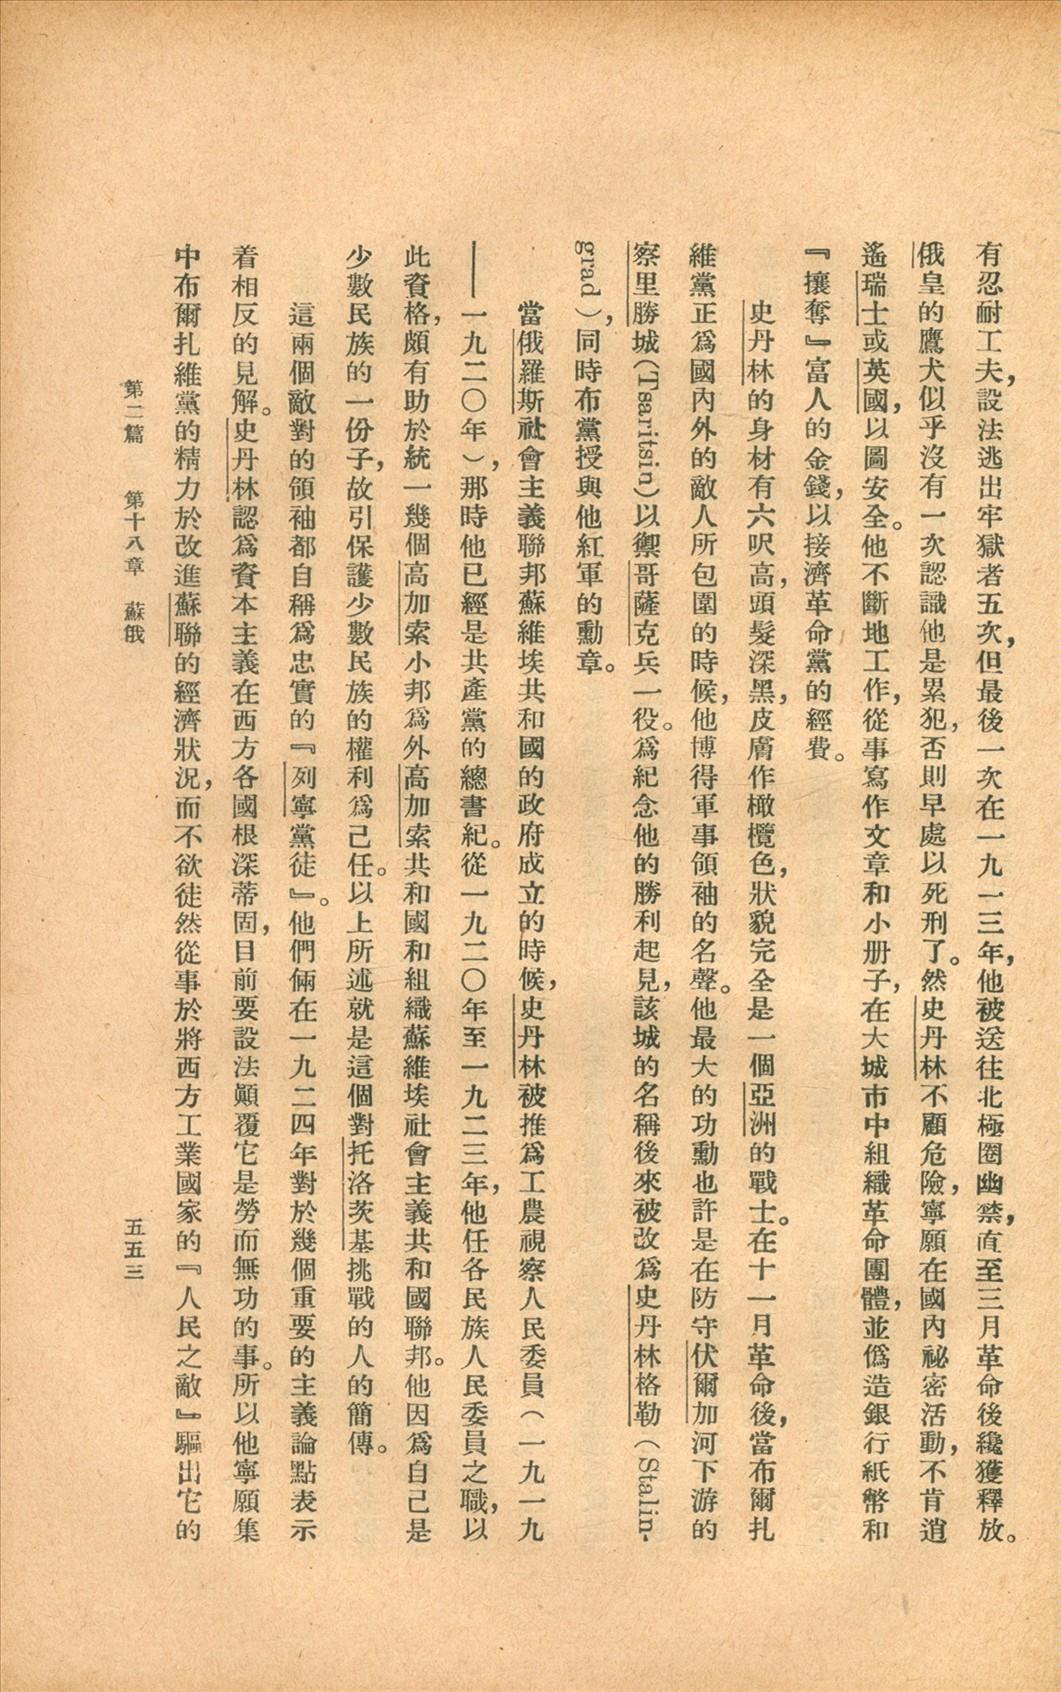 有忍耐工夫，設法逃出牢獄者五次，但最後一次在一九一三年，他被送往北極圈幽禁，直至三月革命後纔獲釋放。
俄皇的鷹犬似乎沒有一次認識他是累犯，否則早處以死刑了。然史丹林不顧危險，寧願在國內祕密活動，不肯逍
遙瑞士或英國，以圖安全。他不斷地工作，從事寫作文章和小册子，在大城市中組織革命團體，並僞造銀行紙幣和
『攘奪』富人的金錢，以接濟革命黨的經費。
史丹林的身材有六呎高，頭髮深黑，皮膚作橄欖色，狀貌完全是一個亞洲的戰士。在十一月革命後，當布爾扎
維黨正爲國內外的敵人所包圍的時候，他博得軍事領袖的名聲。他最大的功勳也許是在防守伏爾加河下游的
察里勝城（Tsaritsin）以禦哥薩克兵一役。爲紀念他的勝利起見，該城的名稱後來被改爲史丹林格勒（Stalin-
grad），同時布黨授與他紅軍的勳章。
當俄羅斯社會主義聯邦蘇維埃共和國的政府成立的時候，史丹林被推爲工農視察人民委員（一九一九
——一九二〇年），那時他已經是共產黨的總書紀。從一九二〇年至一九二三年，他任各民族人民委員之職，以
此資格，頗有助於統一幾個高加索小邦爲外高加索共和國和組織蘇維埃社會主義共和國聯邦。他因爲自己是
少數民族的一份子，故引保護少數民族的權利爲己任。以上所述就是這個對托洛茨基挑戰的人的簡傳。
這兩個敵對的領袖都自稱爲忠實的『列寧黨徒』。他們倆在一九二四年對於幾個重要的主義論點表示
着相反的見解。史丹林認爲資本主義在西方各國根深蒂固，目前要設法顚覆它是勞而無功的事。所以他寧願集
中布爾扎維黨的精力於改進蘇聯的經濟狀況，而不欲徒然從事於將西方工業國家的『人民之敵』驅出它的
第二篇　第十八章　蘇俄
五五三